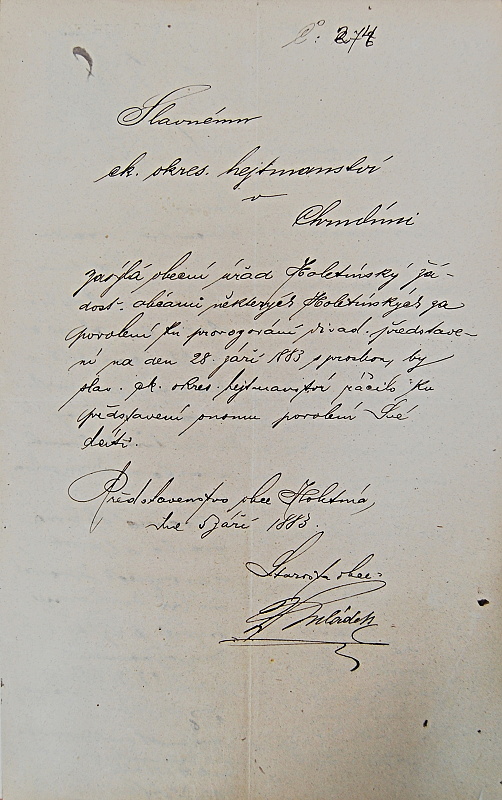 Slavnému
ck. okres. hejtmanství
v
Chrudimi
zasýlá obecní úřad Holetínský žá-
dost. občanů některých Holetínských za
povolení ku provozování divad. představe-
ní na den 28. září 1883 s prosbou, by
slav. ck. okres. hejtmanství ráčilo ku
představení onomu povolení Své
dáti.
Představenstvo obce Holetína,
dne 5 září 1883.
Starosta obce:
Mládek